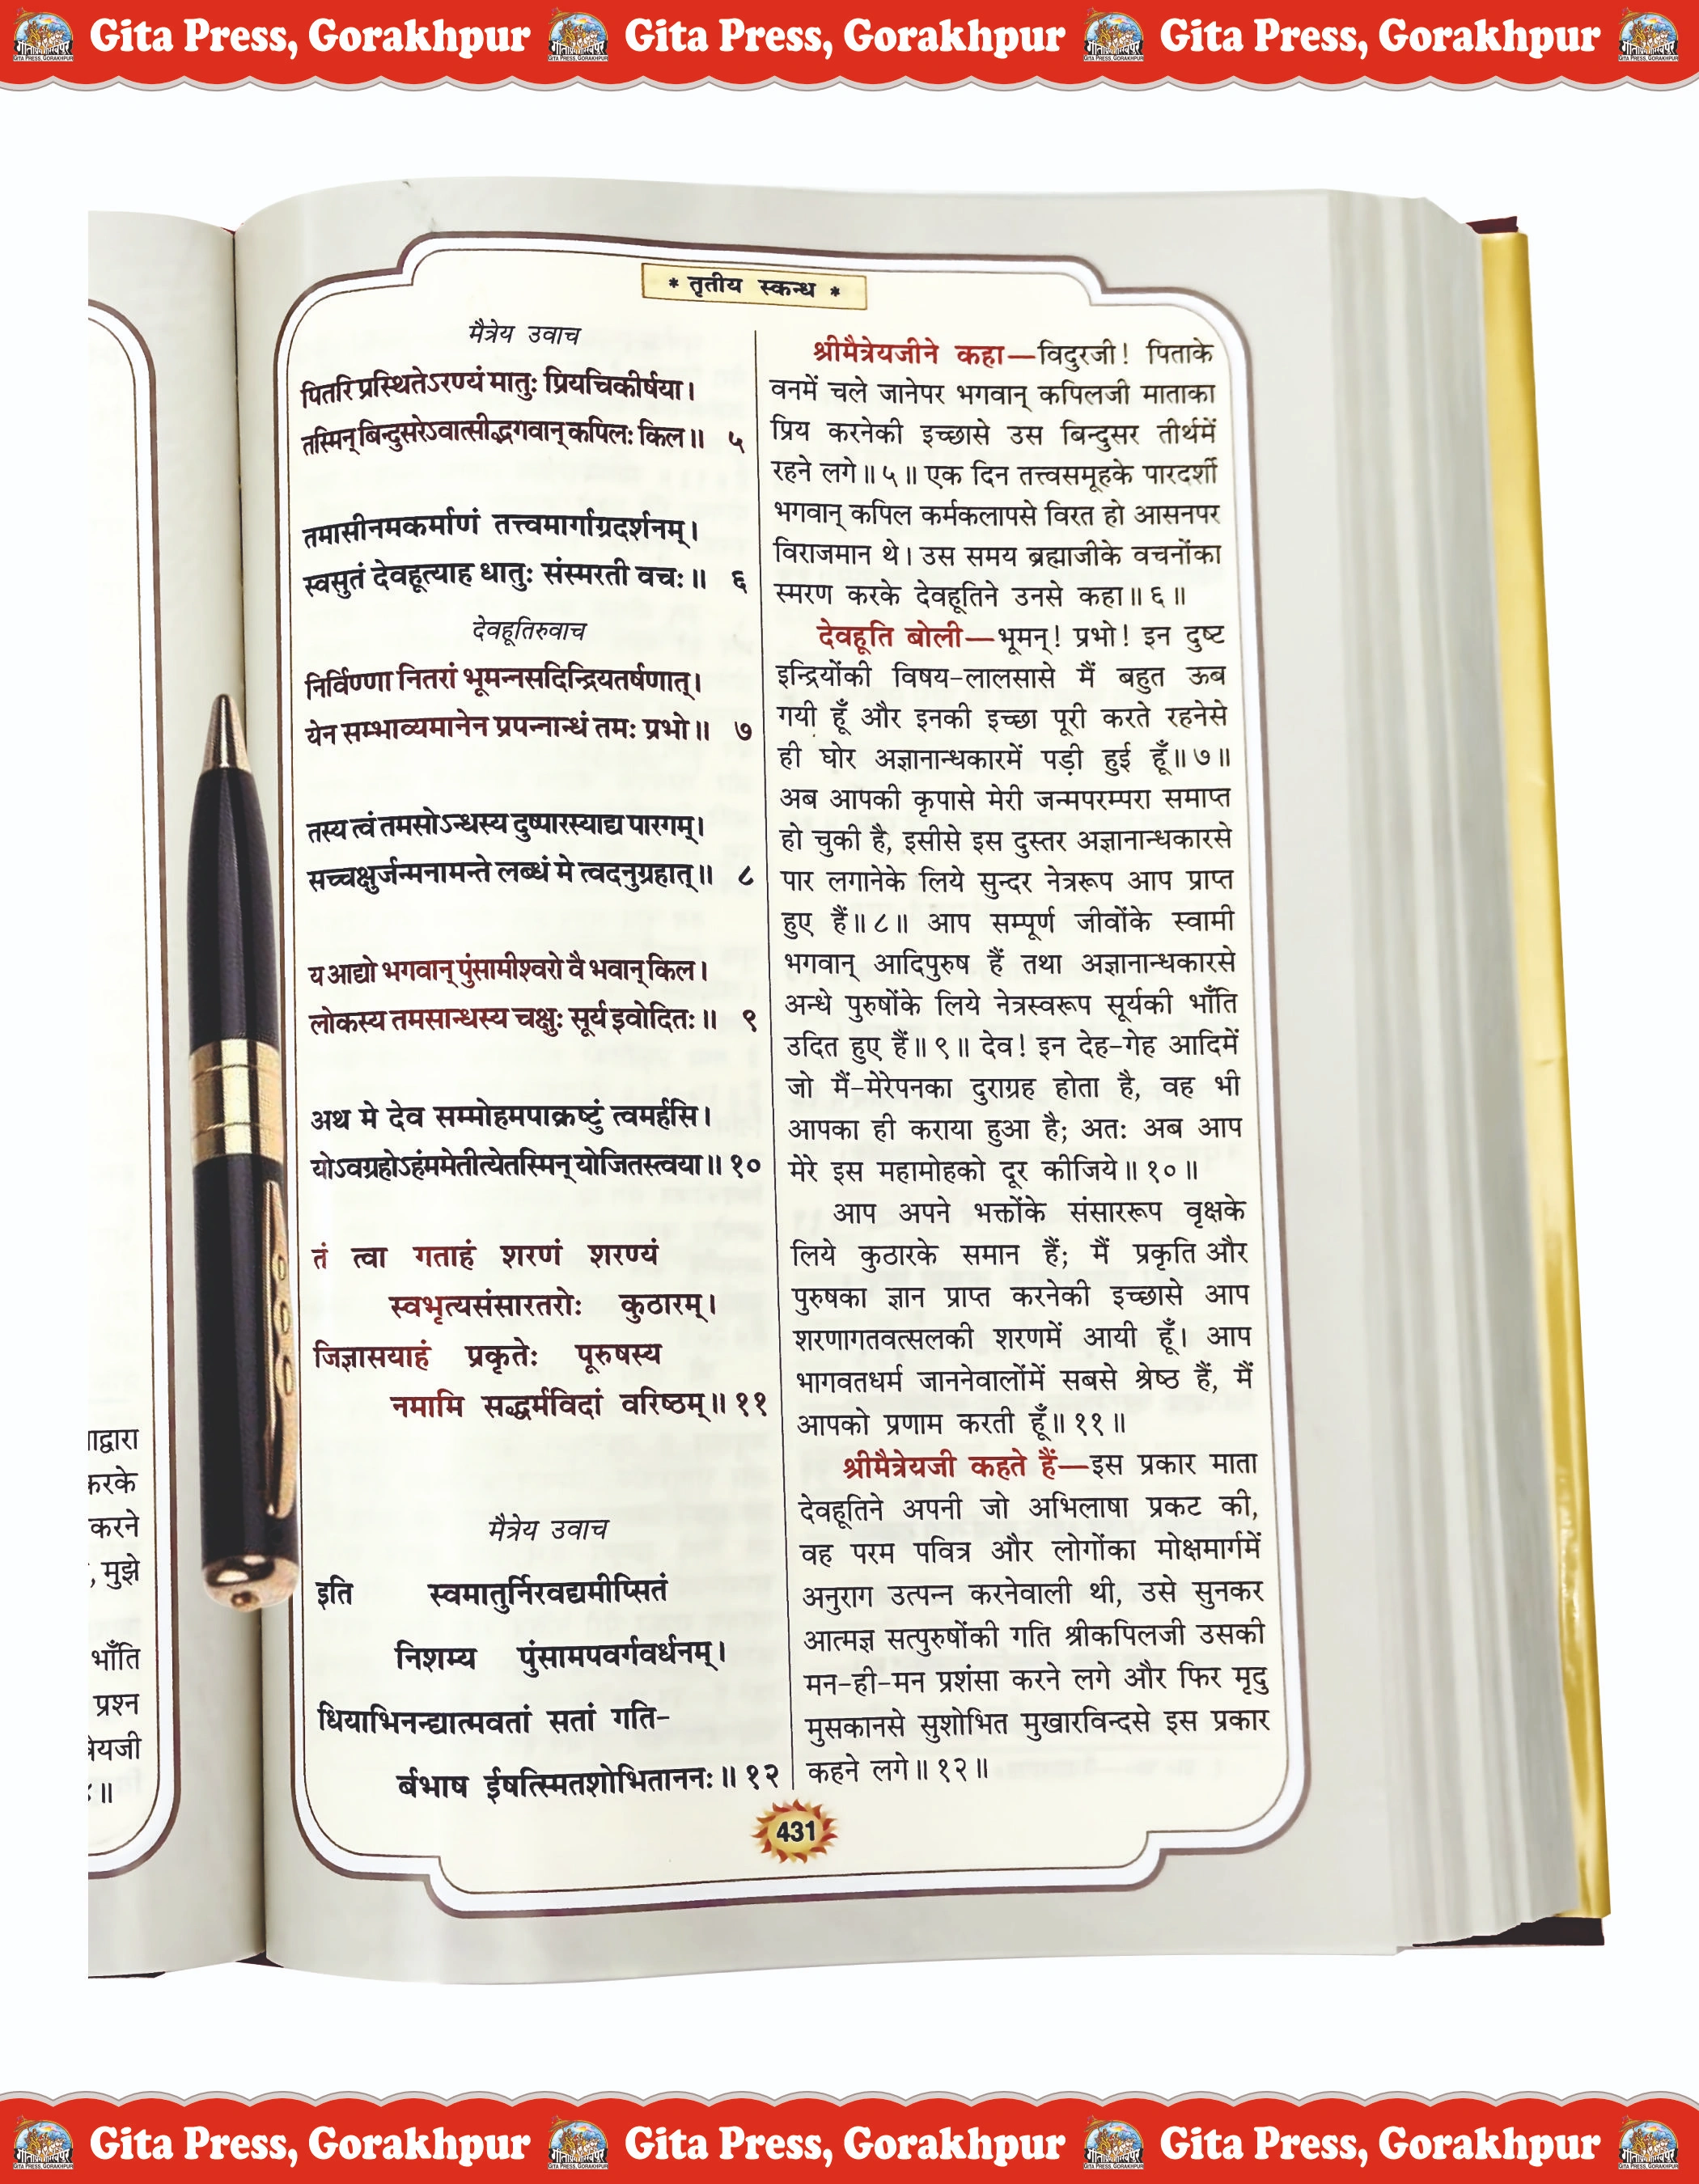 Gita Press, Gorakhpur Gita Press, Gorakhpur Gita Press, Gorakhpur
* तृतीय स्कन्ध *
मैत्रेय उवाच
पितरि प्रस्थितेऽरण्यं मातुः प्रियचिकीर्षया।
तस्मिन् बिन्दुसरेऽवात्सीद्भगवान् कपिलः किल॥ ५
तमासीनमकर्माणं तत्त्वमार्गाग्रदर्शनम्।
स्वसुतं देवहूत्याह धातुः संस्मरती वचः॥ ६
देवहूतिरुवाच
निर्विण्णा नितरां भूमन्नसदिन्द्रियतर्षणात्।
येन सम्भाव्यमानेन प्रपन्नान्धं तमः प्रभो॥ ७
तस्य त्वं तमसोऽन्धस्य दुष्पारस्याद्य पारगम्।
सच्चक्षुर्जन्मनामन्ते लब्धं मे त्वदनुग्रहात्॥ ८
य आद्यो भगवान् पुंसामीश्वरो वै भवान् किल।
लोकस्य तमसान्धस्य चक्षुः सूर्य इवोदितः॥ ९
अथ मे देव सम्मोहमपाक्रष्टुं त्वमर्हसि।
योऽवग्रहोऽहंममेतीत्येतस्मिन् योजितस्त्वया॥ १०
तं त्वा गताहं शरणं शरण्यं
स्वभृत्यसंसारतरोः कुठारम्।
जिज्ञासयाहं प्रकृतेः पूरुषस्य
नमामि सद्धर्मविदां वरिष्ठम्॥ ११
मैत्रेय उवाच
इति स्वमातुर्निरवद्यमीप्सितं
निशम्य पुंसामपवर्गवर्धनम्।
धियाभिनन्द्यात्मवतां सतां गति-
र्बभाष ईषत्स्मितशोभिताननः॥ १२
श्रीमैत्रेयजीने कहा—विदुरजी! पिताके
वनमें चले जानेपर भगवान् कपिलजी माताका
प्रिय करनेकी इच्छासे उस बिन्दुसर तीर्थमें
रहने लगे॥ ५॥ एक दिन तत्त्वसमूहके पारदर्शी
भगवान् कपिल कर्मकलापसे विरत हो आसनपर
विराजमान थे। उस समय ब्रह्माजीके वचनोंका
स्मरण करके देवहूतिने उनसे कहा॥ ६॥
देवहूति बोली—भूमन्! प्रभो! इन दुष्ट
इन्द्रियोंकी विषय-लालसासे मैं बहुत ऊब
गयी हूँ और इनकी इच्छा पूरी करते रहनेसे
ही घोर अज्ञानान्धकारमें पड़ी हुई हूँ॥ ७॥
अब आपकी कृपासे मेरी जन्मपरम्परा समाप्त
हो चुकी है, इसीसे इस दुस्तर अज्ञानान्धकारसे
पार लगानेके लिये सुन्दर नेत्ररूप आप प्राप्त
हुए हैं॥ ८॥ आप सम्पूर्ण जीवोंके स्वामी
भगवान् आदिपुरुष हैं तथा अज्ञानान्धकारसे
अन्धे पुरुषोंके लिये नेत्रस्वरूप सूर्यकी भाँति
उदित हुए हैं॥ ९॥ देव! इन देह-गेह आदिमें
जो मैं-मेरेपनका दुराग्रह होता है, वह भी
आपका ही कराया हुआ है; अतः अब आप
मेरे इस महामोहको दूर कीजिये॥ १०॥
आप अपने भक्तोंके संसाररूप वृक्षके
लिये कुठारके समान हैं; मैं प्रकृति और
पुरुषका ज्ञान प्राप्त करनेकी इच्छासे आप
शरणागतवत्सलकी शरणमें आयी हूँ। आप
भागवतधर्म जाननेवालोंमें सबसे श्रेष्ठ हैं, मैं
आपको प्रणाम करती हूँ॥ ११॥
श्रीमैत्रेयजी कहते हैं—इस प्रकार माता
देवहूतिने अपनी जो अभिलाषा प्रकट की,
वह परम पवित्र और लोगोंका मोक्षमार्गमें
अनुराग उत्पन्न करनेवाली थी, उसे सुनकर
आत्मज्ञ सत्पुरुषोंकी गति श्रीकपिलजी उसकी
मन-ही-मन प्रशंसा करने लगे और फिर मृदु
मुसकानसे सुशोभित मुखारविन्दसे इस प्रकार
कहने लगे॥ १२॥
431
करके
करने
, मुझे
भाँति
प्रश्न
Gita Press, Gorakhpur Gita Press, Gorakhpur Gita Press, Gorakhpur